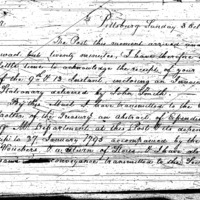 Pittsburg Sunday 3 Oct
The Post this moment arrived and
but twenty minutes, I have therefore
little time to acknowledge the receipt of your
of the 9th & 13 Instant, enclosing an Invoice
Stationary delivered by John Smith.
By this Mail I have transmitted to the
of the Treasury an abstract of Expendi
Department at this Post & its depen
to 27 January 1798 accompanied by the
Vouchers & a return of Stores. I have al
conveyance transmitted to the